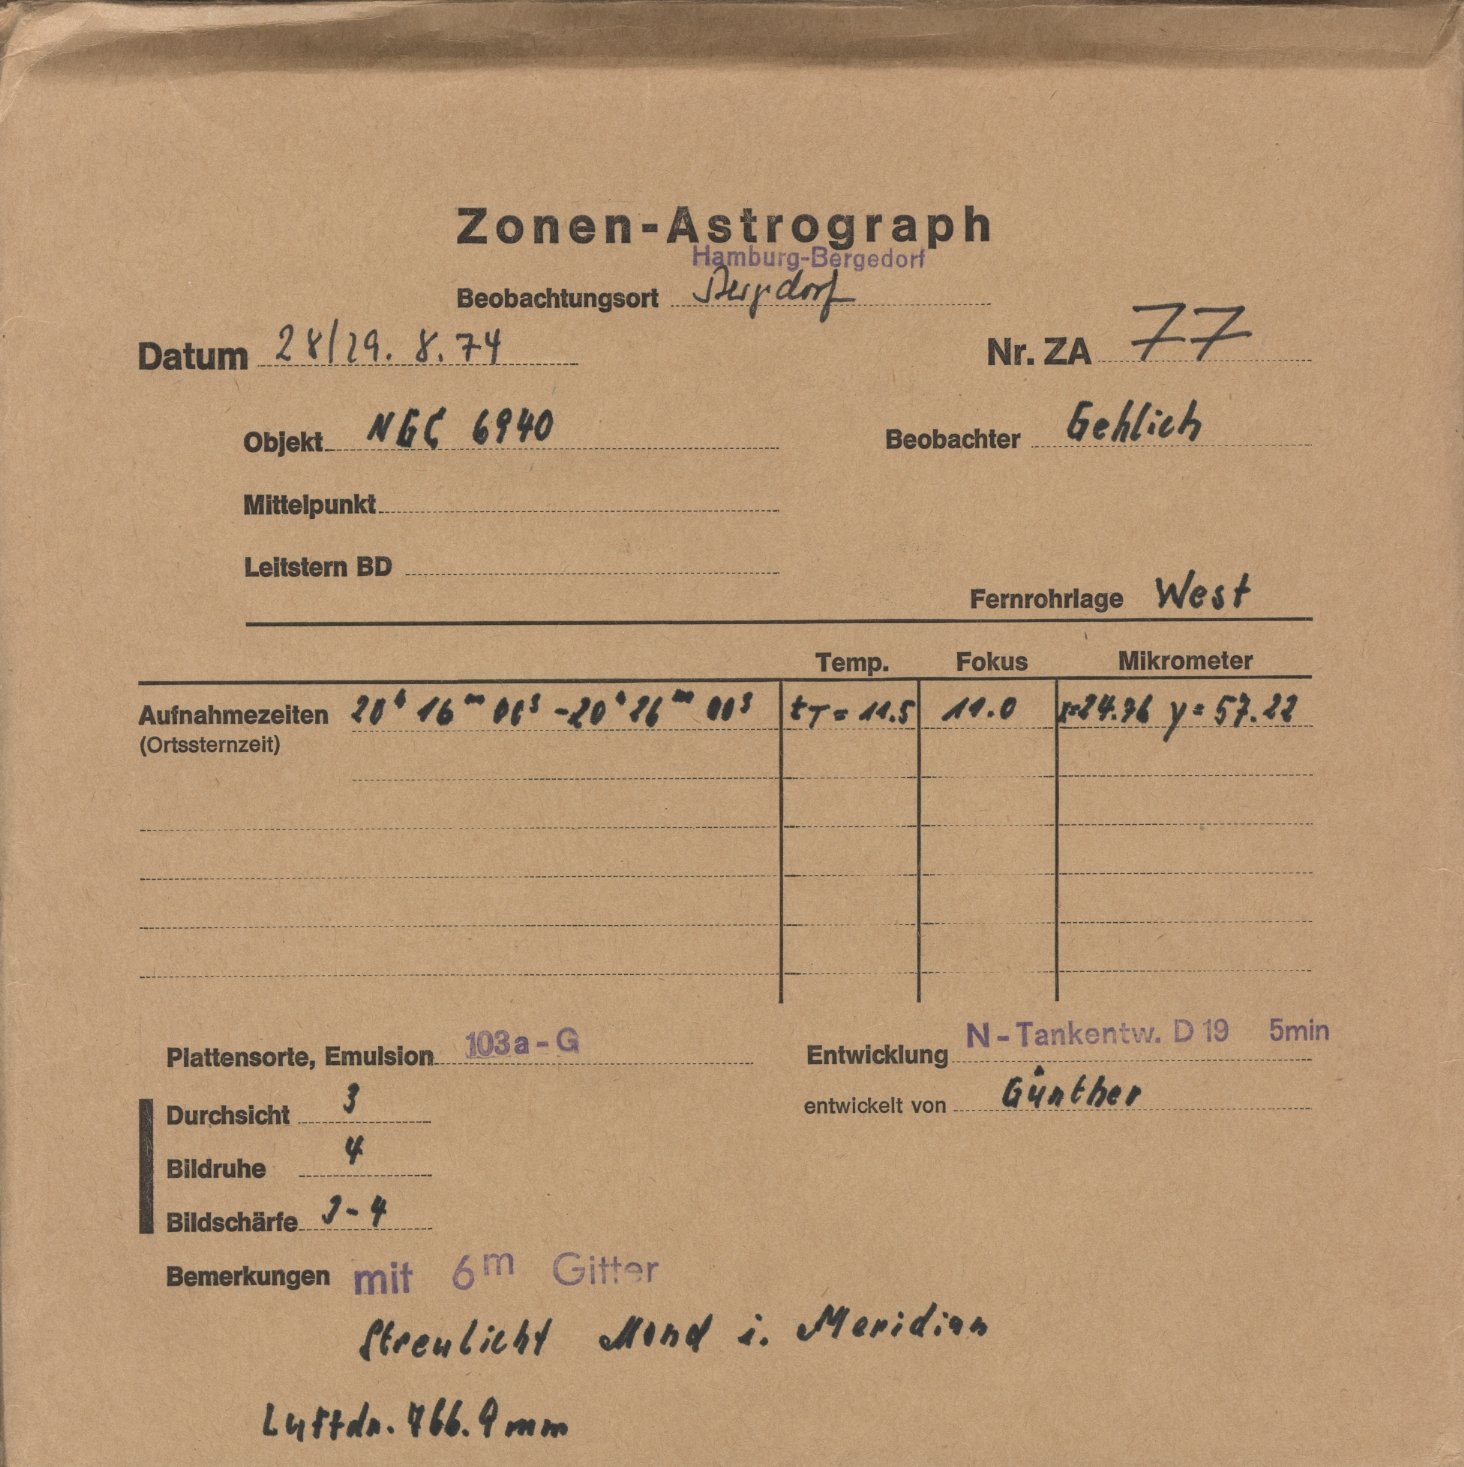 Zonen-Astrograph
Hamburg-Bergedorf
Beobachtungsort Bergedorf
Datum 28/29. 8. 74
Nr. ZA 77
Objekt NGC 6940
Beobachter Gehlich
Mittelpunkt
Leitstern BD
Fernrohrlage West
Temp. Fokus Mikrometer
Aufnahmezeiten 20h 16m 00s - 20h 26m 00s tT = 11.5 11.0 x=24.96 y = 57.22
(Ortssternzeit)
Plattensorte, Emulsion 103a-G
Entwicklung N-Tankentw. D 19 5min
entwickelt von Günther
Durchsicht 3
Bildruhe 4
Bildschärfe 3-4
Bemerkungen mit 6m Gitter
Streulicht Mond i. Meridian
Luftdr. 766.9 mm